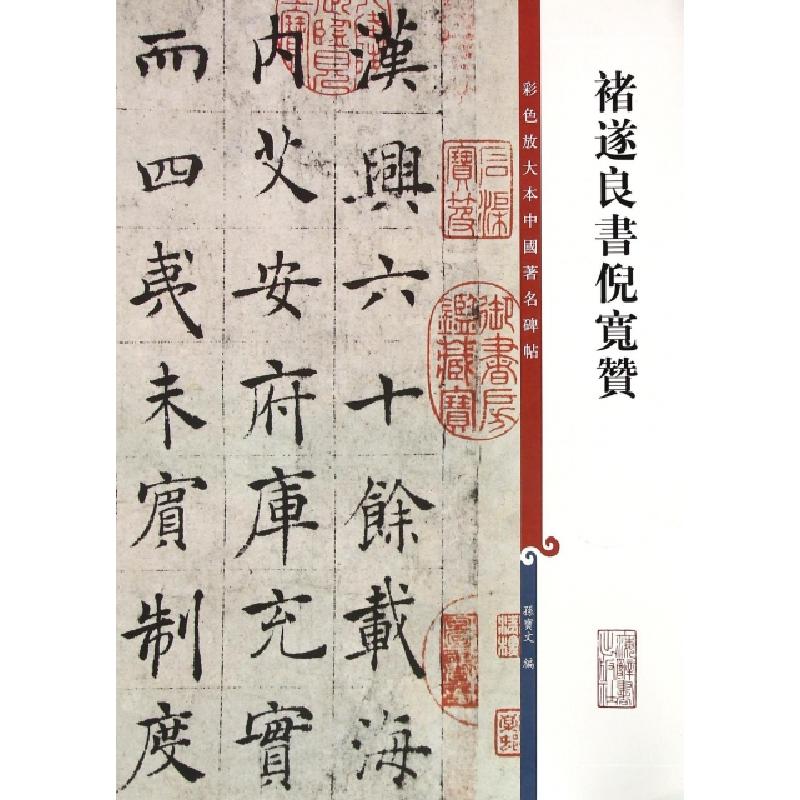 褚遂良書倪寬贊
彩色放大本中國著名碑帖
孫寶文 編
漢興六十餘載海
内艾安府庫充實
而四夷未賓制度
御書房
鑑藏寶